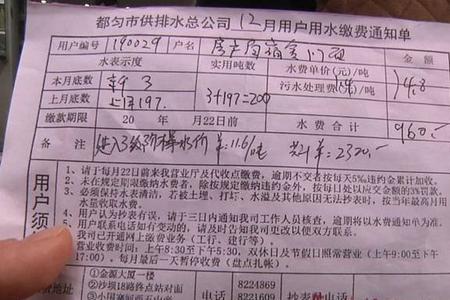 都匀市供排水总公司12月用户用水缴费通知单
用户编号 190029 户名 房产局宿舍 金额
水表示度 实用吨数 水费单价(元)/吨
本月底数 3 污水处理费( )/吨 4.8
上月底数 上月197. 3+197=200
缴款期限 20 年 月22日前 水费合计 960.-
备注 进入3级阶梯水价 ¥:11.6/吨 共计¥:2320.-
用户须
1、请于每月22日前来我营业厅及代收点缴费,逾期不交者按每天5%违约金累计加收。
2、未在规定期限缴纳水费者,除按规定缴纳违约金外,按每日处以应交金额的3%罚款。
3、必须保持水表清洁,若被土埋、打坏、水溢及其他原因无法抄表时,按当年最高月用
水量收取水费。
4、用户认为抄表有误,请于三日内通知我司工作人员核查,逾期将以缴费通知单为准。
5、用户联系电话如有变动的,请及时告知我司更改以便双方联系。
6、我司可开通网上缴费业务(工行、建行等)。
营业收费时间:上午8:30至下午5:30,双休日及节假日照常营业(上午9:00至下午
17:00)。每月最后一天暂停收费(盘点扎帐)。
①金源大厦一楼 8224869
②沙坝18路终点站对面 电话 8221609